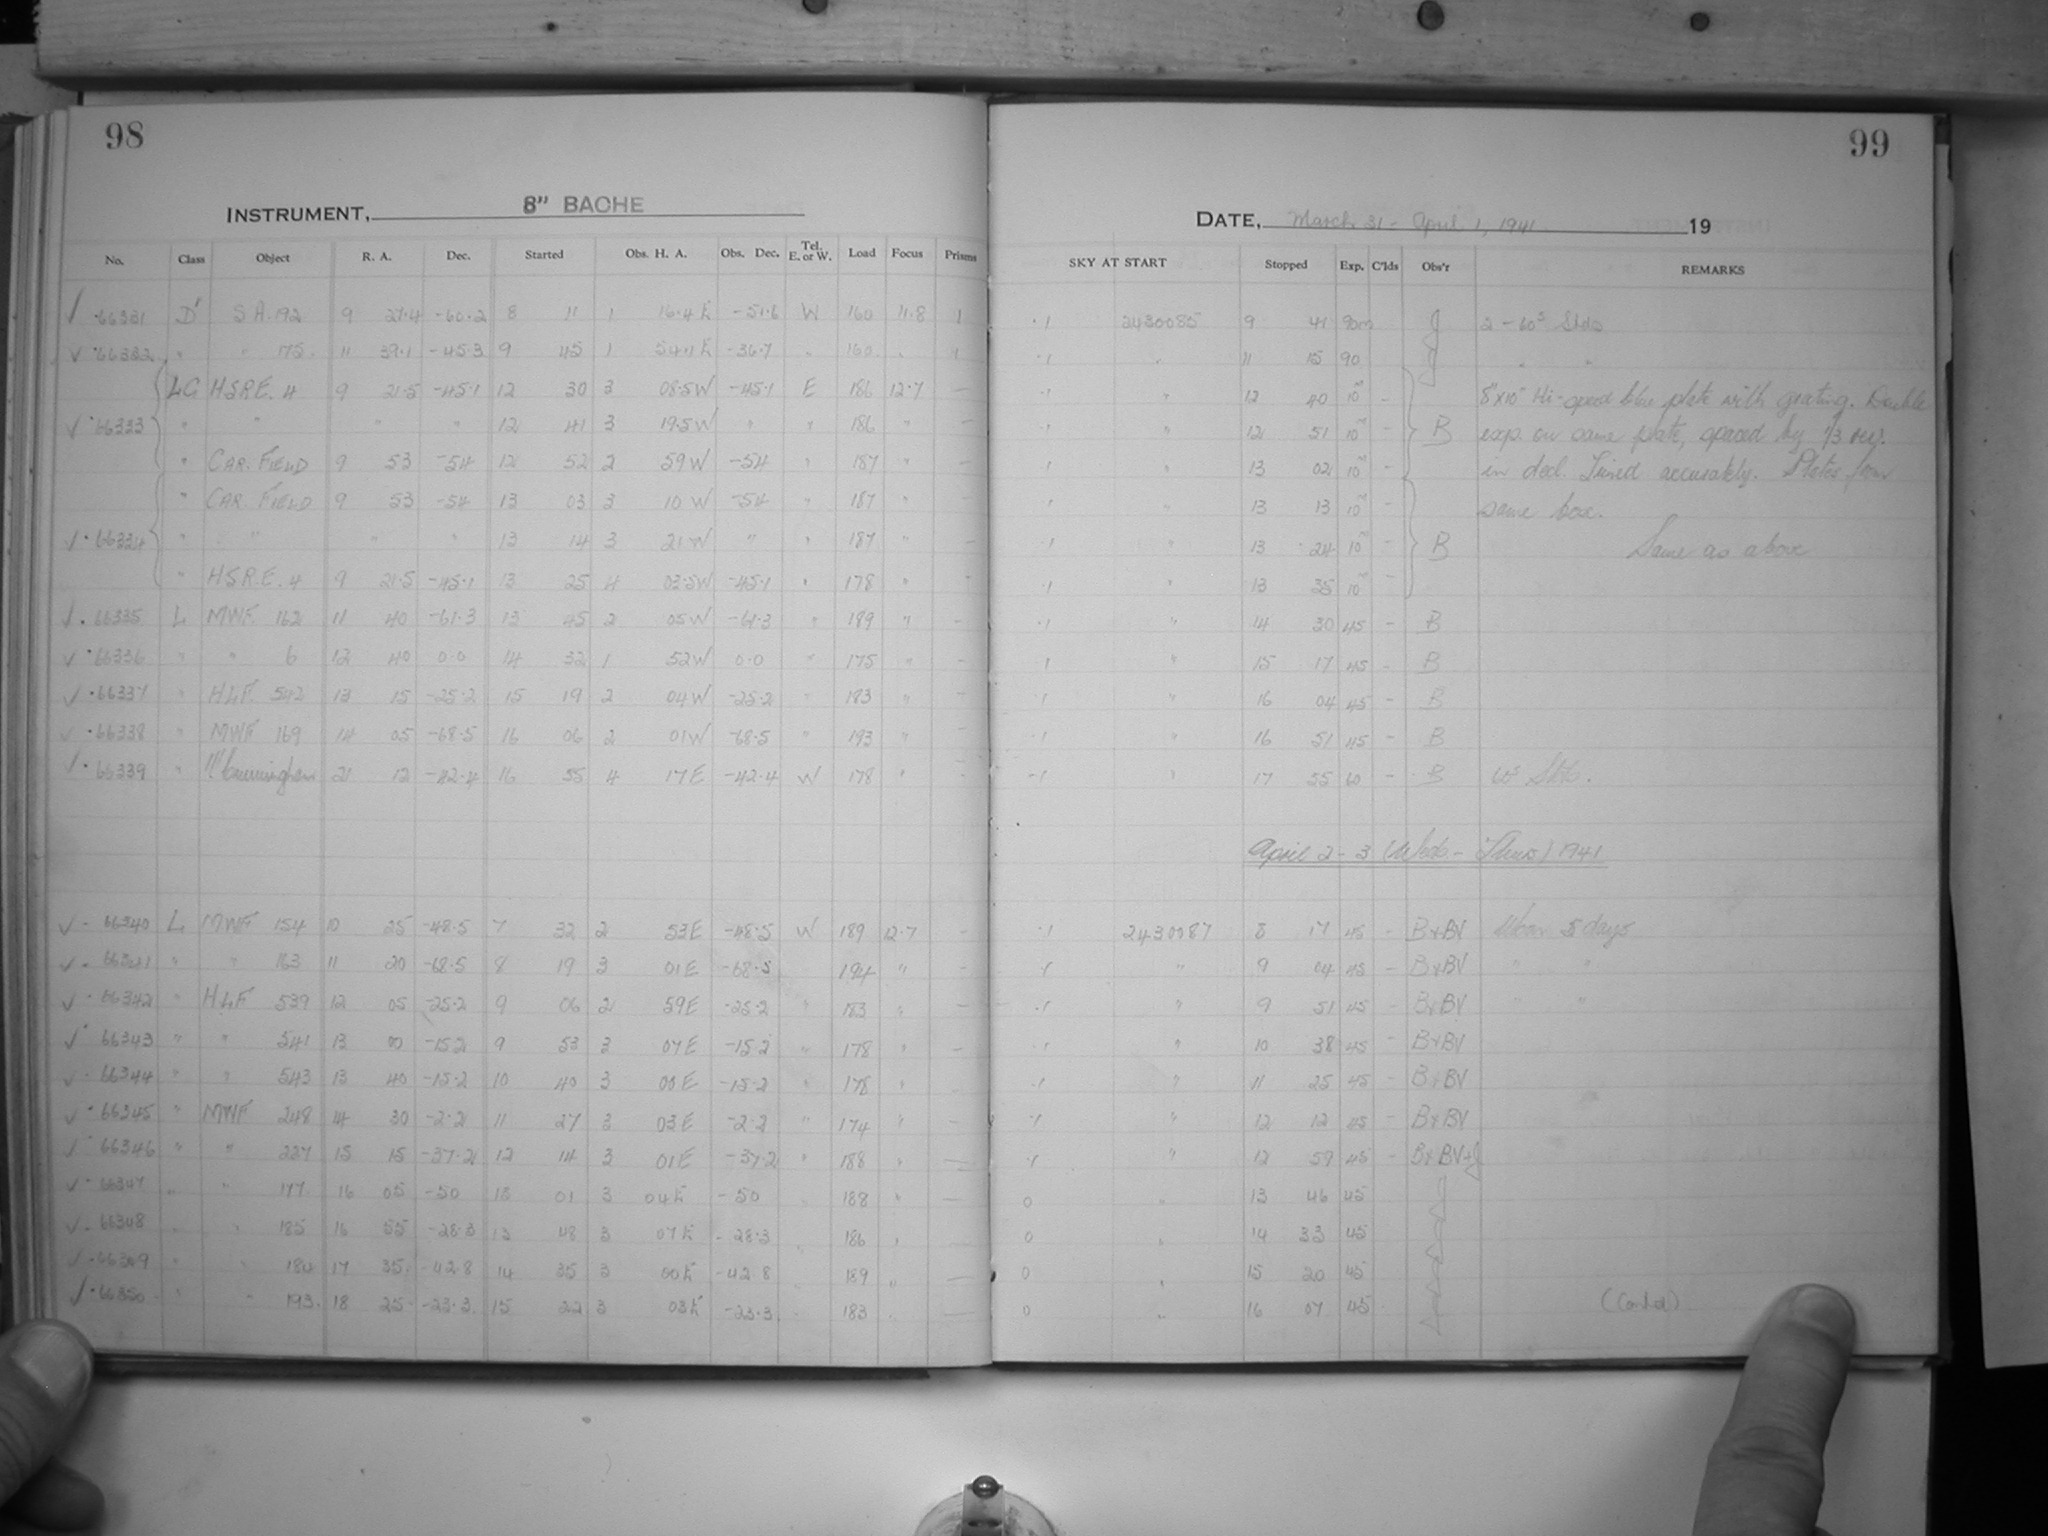 98
INSTRUMENT, 8" BACHE
No. Class Object R. A. Dec. Started Obs. H. A. Obs. Dec. Tel. E. or W. Load Focus Prisms
66331 D' S.A. 192 9 27.4 -60.2 8 11 1 16.4 E -51.6 W 160 11.8 1
66332 " " 175 11 39.1 -45.3 9 45 1 54.1 E -36.7 " 160 " 1
LG HSRE. 4 9 21.5 -45.1 12 30 3 08.5W -45.1 E 186 12.7 -
66333 " " " " 12 41 3 19.5W " " 186 " -
" CAR. FIELD 9 53 -54 12 52 2 59W -54 " 187 " -
" CAR. FIELD 9 53 -54 13 03 3 10 W -54 " 187 "
66334 " " " " 13 14 3 21W " " 187 " -
" HSRE. 4 9 21.5 -45.1 13 25 4 03.5W -45.1 " 178 " -
66335 L MWF 162 11 40 -61.3 13 45 2 05W -61.3 " 189 " -
66336 " " 6 12 40 0.0 14 32 1 52W 0.0 " 175 " -
66337 " HLF 542 13 15 -25.2 15 19 2 04W -25.2 " 183 " -
66338 " MWF 169 14 05 -68.5 16 06 2 01W -68.5 " 193 " -
66339 " Cunningham 21 12 -42.4 16 55 4 17E -42.4 W 178 " -
66340 L MWF 154 10 25 -48.5 7 32 2 53E -48.5 W 189 12.7 -
66341 " " 163 11 20 -68.5 8 19 3 01E -68.5 194 " -
66342 " HLF 539 12 05 -25.2 9 06 2 59E -25.2 " 183 " -
66343 " " 541 13 00 -15.2 9 53 3 07E -15.2 " 178 " -
66344 " " 543 13 40 -15.2 10 40 3 00E -15.2 " 178 " -
66345 " MWF 248 14 30 -2.2 11 27 3 03E -2.2 " 174 " -
66346 " " 227 15 15 -37.2 12 14 3 01E -37.2 " 188 " -
66347 " " 177 16 05 -50 13 01 3 04E -50 " 188 " -
66348 " " 185 16 55 -28.3 13 48 3 07E -28.3 " 186 " -
66349 " " 184 17 35 -42.8 14 35 3 00E -42.8 " 189 " -
66350 " 193 18 25 -23.3 15 22 3 03E -23.3 " 183 " -
99
DATE, March 31 - April 1, 1941 19
SKY AT START Stopped Exp. C'lds Obs'r REMARKS
.1 2430085 9 41 90m J 2 - 60s Stds
.1 " 11 15 90 J " "
.1 " 12 40 10m - 8"x10" Hi-speed blue plate with grating. Double
.1 " 12 51 10m - B exp. on same plate, spaced by 1/3 rev.
.1 " 13 02 10m - in decl. Timed accurately. Plates from
.1 " 13 13 10m - same box.
.1 " 13 24 10m - B Same as above
.1 " 13 35 10m -
.1 " 14 30 45 - B
.1 " 15 17 45 - B
.1 " 16 04 45 - B
.1 " 16 51 45 - B
.1 " 17 55 60 - B 60s Stds.
April 2 - 3 (Wed. - Thurs) 1941
.1 2430087 8 17 45 - B+BV Moon 5 days
.1 " 9 04 45 - B+BV " "
.1 " 9 51 45 - B+BV " "
.1 " 10 38 45 - B+BV
.1 " 11 25 45 - B+BV
.1 " 12 12 45 - B+BV
.1 " 12 59 45 - B+BV+J
0 " 13 46 45 J
0 " 14 33 45 J
0 " 15 20 45 J
0 " 16 07 45 J (Cont'd)